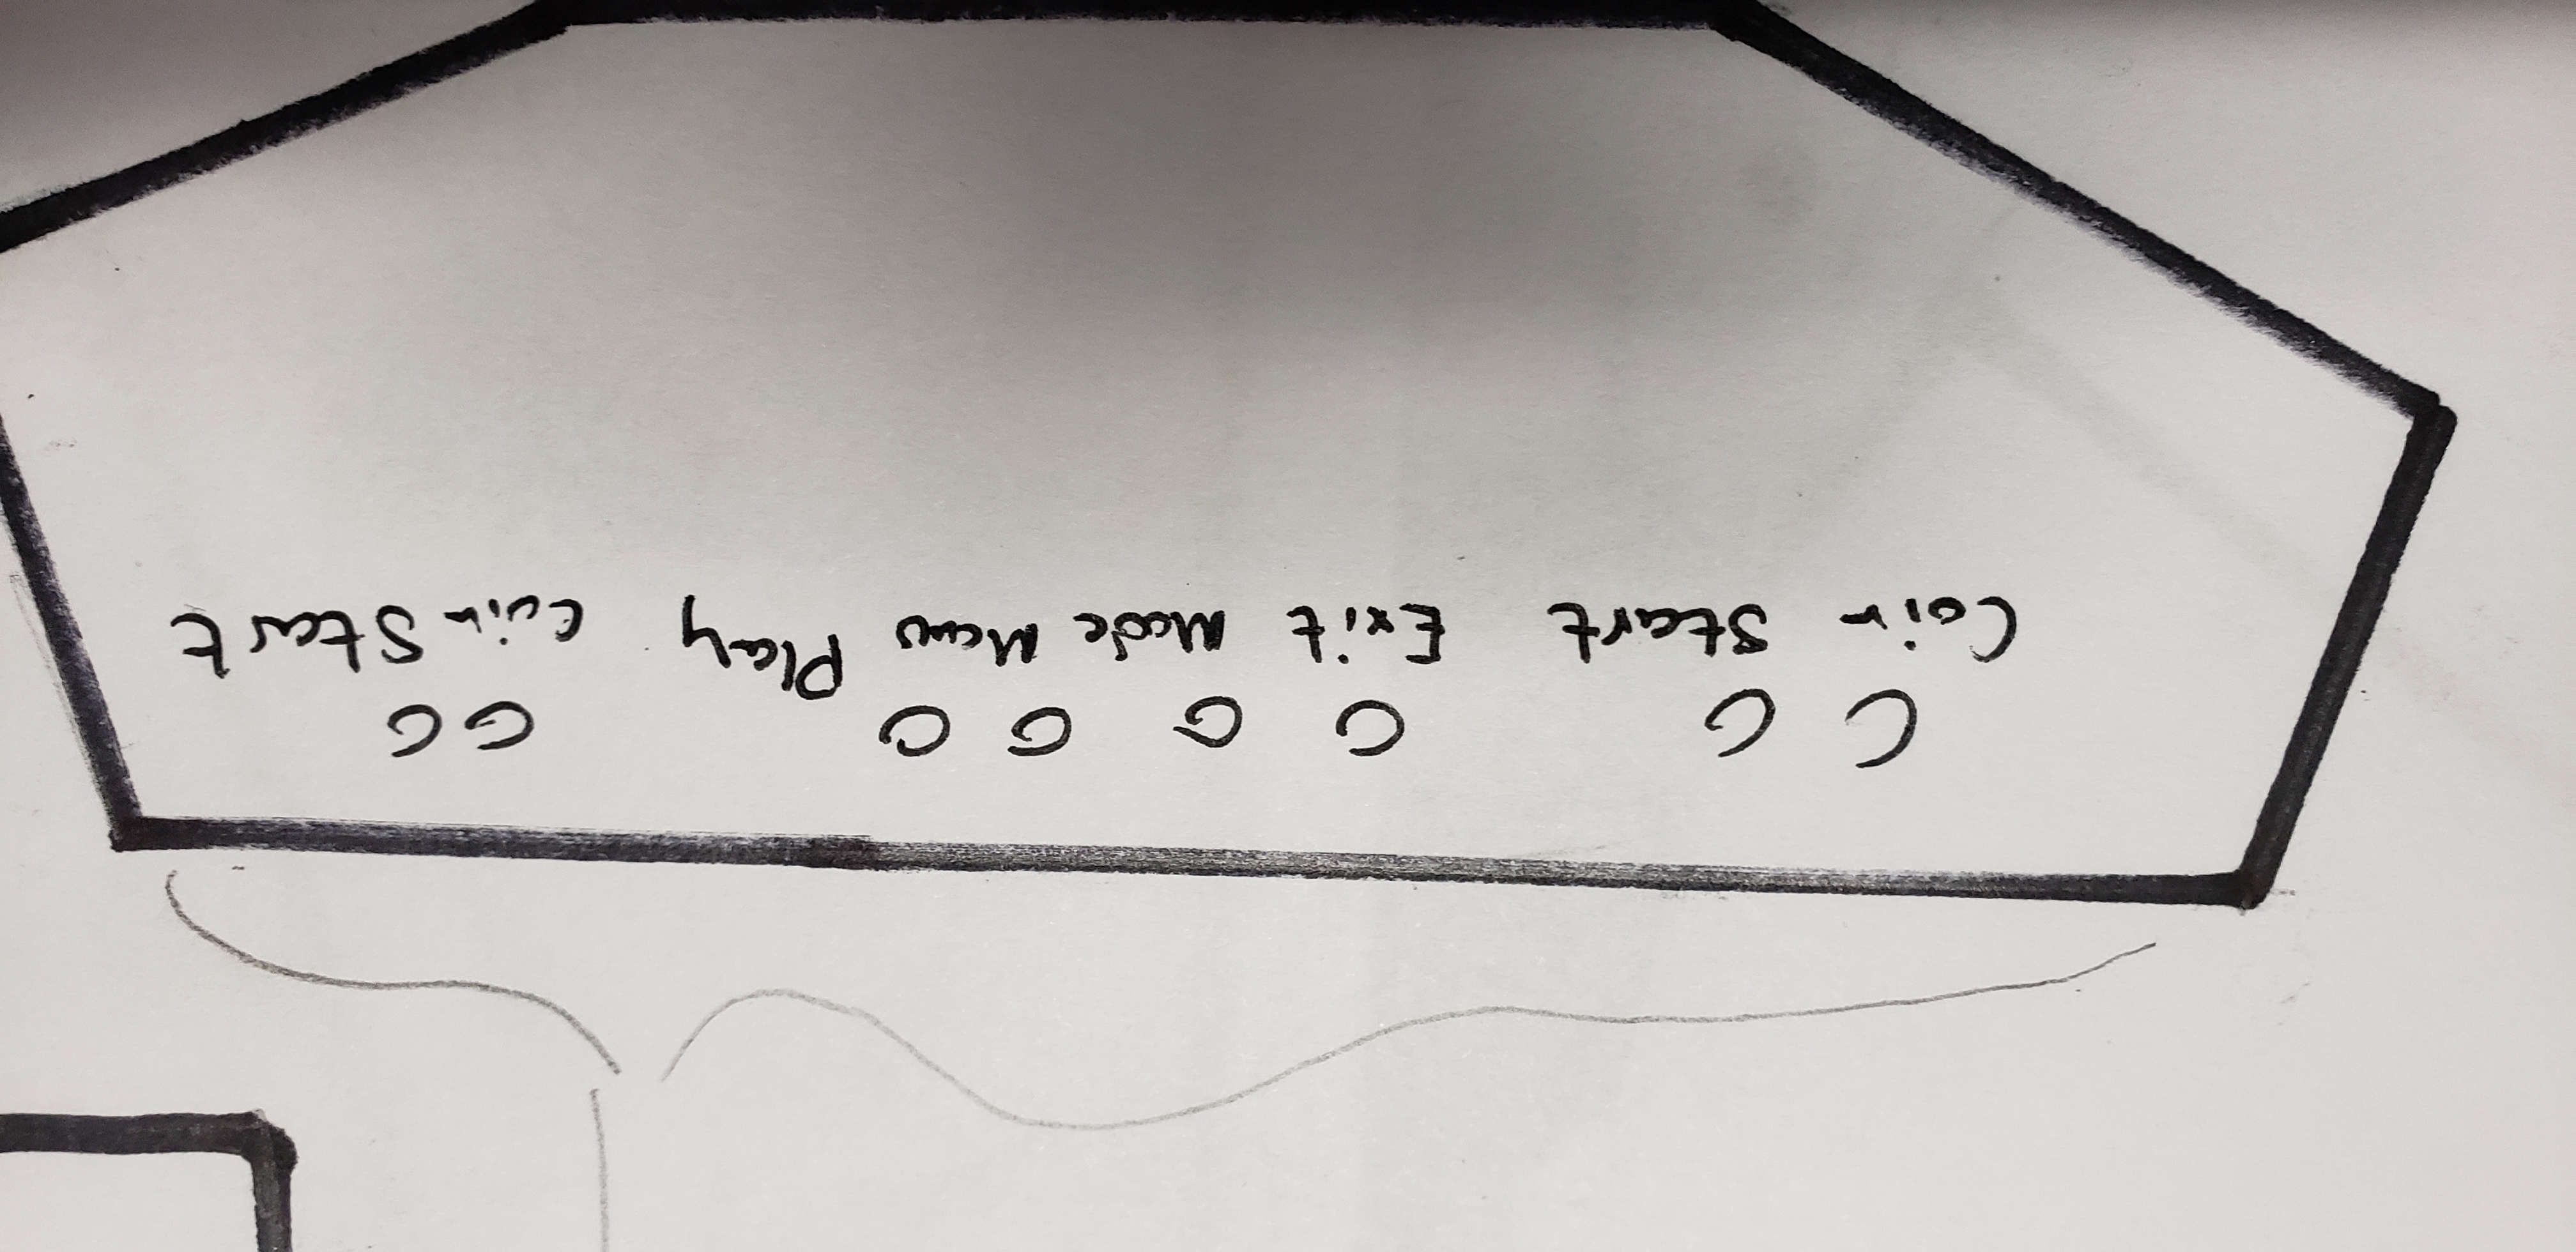 Coin Start Exit Mode Menu Play Coin Start